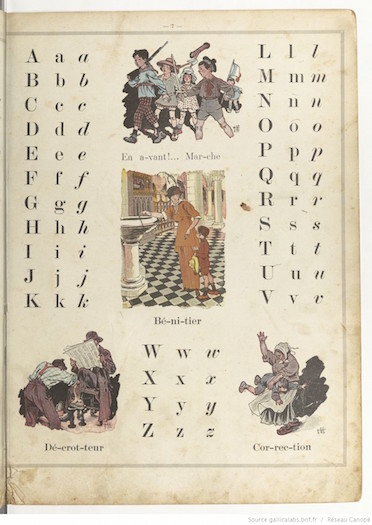 — 7 —
A a a
B b b
C c c
D d d
E e e
F f f
G g g
H h h
I i i
J j j
K k k
En a-vant!... Mar-che
Bé-ni-tier
L l l
M m m
N n n
O o o
P p p
Q q q
R r r
S s s
T t t
U u u
V v v
W w w
X x x
Y y y
Z z z
Dé-crot-teur
Cor-rec-tion
Source gallicalabs.bnf.fr / Réseau Canopé